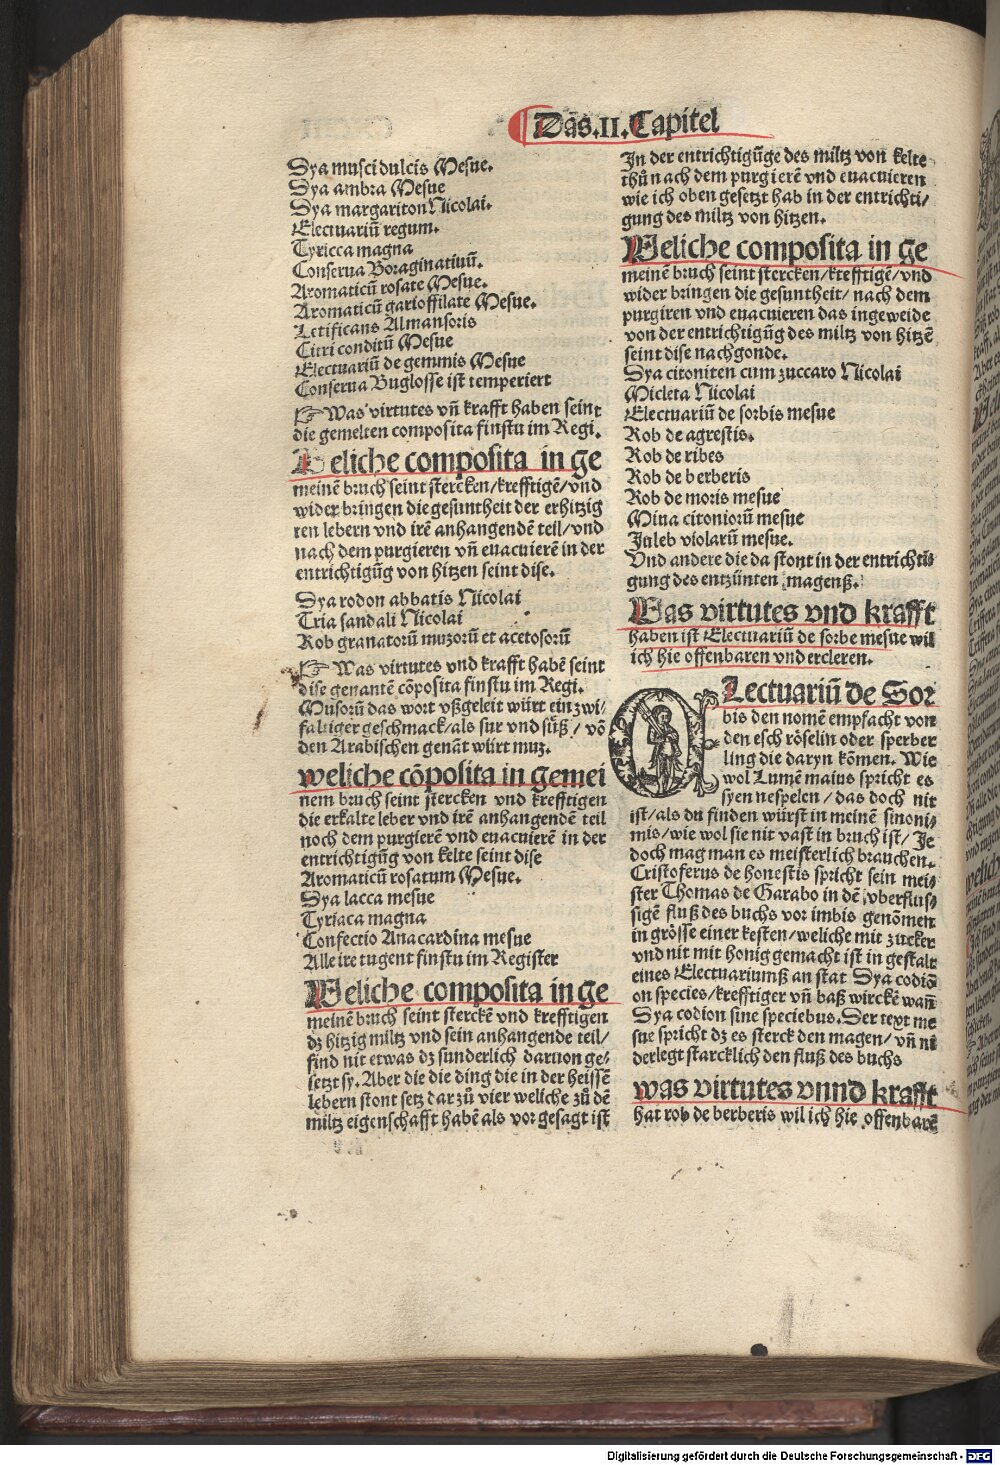 Das .II. Capitel
Dya musci dulcis Mesue.
Dya ambra Mesue
Dya margariton Nicolai.
Electuariū regum.
Tyricca magna
Conserua Boraginatiuū.
Aromaticū rosate Mesue.
Aromaticū garioffilate Mesue.
Letificans Almansoris
Citri conditū Mesue
Electuariū de gemmis Mesue
Conserua Buglosse ist temperiert
☞ Was virtutes vñ krafft haben seint
die gemelten composita finstu im Regi.
Weliche composita in ge
meinē bruch seint stercken/krefftigē/vnd
wider bringen die gesuntheit der erhitzig
ten lebern vnd irē anhangendē teil/vnd
nach dem purgieren vñ euacuierē in der
entrichtigūg von hitzen seint dise.
Dya rodon abbatis Nicolai
Tria sandali Nicolai
Rob granatorū muzorū et acetosorū
☞ Was virtutes vnd krafft habē seint
dise genantē cōposita finstu im Regi.
Musorū das wort vßgeleit würt ein zwi-
faltiger geschmack/als sur vnd sůß/ vō
den Arabischen genāt würt muz.
weliche cōposita in gemei
nem bruch seint stercken vnd krefftigen
die erkalte leber vnd irē anhangendē teil
noch dem purgierē vnd euacuierē in der
entrichtigūg von kelte seint dise
Aromaticū rosatum Mesue.
Dya lacca mesue
Tyriaca magna
Confectio Anacardina mesue
Alle ire tugent finstu im Register
Weliche composita in ge
meinē bruch seint sterckē vnd krefftigen
dz hitzig miltz vnd sein anhangende teil/
find nit etwas dz sunderlich daruon ge-
setzt sy. Aber die die ding die in der heissē
lebern stont setz dar zů vier weliche zů dē
miltz eigenschafft habē als vor gesagt ist
In der entrichtigūge des miltz von kelte
thů nach dem purgierē vnd euacuieren
wie ich oben gesetzt hab in der entrichti/
gung des miltz von hitzen.
Weliche composita in ge
meinē bruch seint stercken/krefftigē/vnd
wider bringen die gesuntheit/ nach dem
purgiren vnd euacuieren das ingeweide
von der entrichtigūg des miltz von hitzē
seint dise nachgonde.
Dya citoniten cum zuccaro Nicolai
Micleta Nicolai
Electuariū de sorbis mesue
Rob de agrestis.
Rob de ribes
Rob de berberis
Rob de moris mesue
Miua citoniorū mesue
Juleb violarū mesue.
Vnd andere die da stont in der entrichti-
gung des entzünten magenß.
Was virtutes vnd krafft
haben ist Electuariū de sorbe mesue wil
ich hie offenbaren vnd ercleren.
Electuariū de Sor
bis den nomē empfacht von
den esch röselin oder sperber
ling die daryn kōmen. Wie
wol Lumē maius spricht es
syen nespelen/ das doch nit
ist/als du finden würst in meinē sinoni-
mis/wie wol sie nit vast in bruch ist/ Je
doch mag man es meisterlich brauchen.
Cristoferus de honestis spricht sein mei-
ster Thomas de Garabo in dē vberflus-
sigē fluß des buchs vor imbis genōmen
in grösse einer kesten/weliche mit zucker
vnd nit mit honig gemacht ist in gestalt
eines Electuariumß an stat Dya codio
on species/krefftiger vñ baß wirckē wañ
Dya codion sine speciebus. Der text me
sue spricht dz es sterck den magen/vñ ni
derlegt starcklich den fluß des buchs
was virtutes vnnd krafft
hat rob de berberis wil ich hie offenbarē
Digitalisierung gefördert durch die Deutsche Forschungsgemeinschaft - DFG